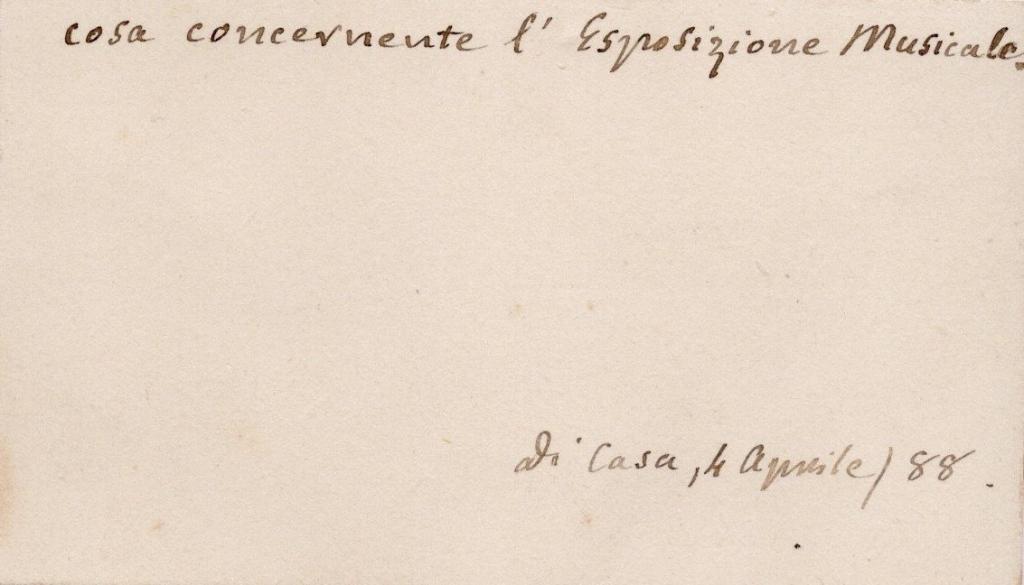 cosa concernente l' Esposizione Musicale.
di Casa, 4 Aprile / 88.